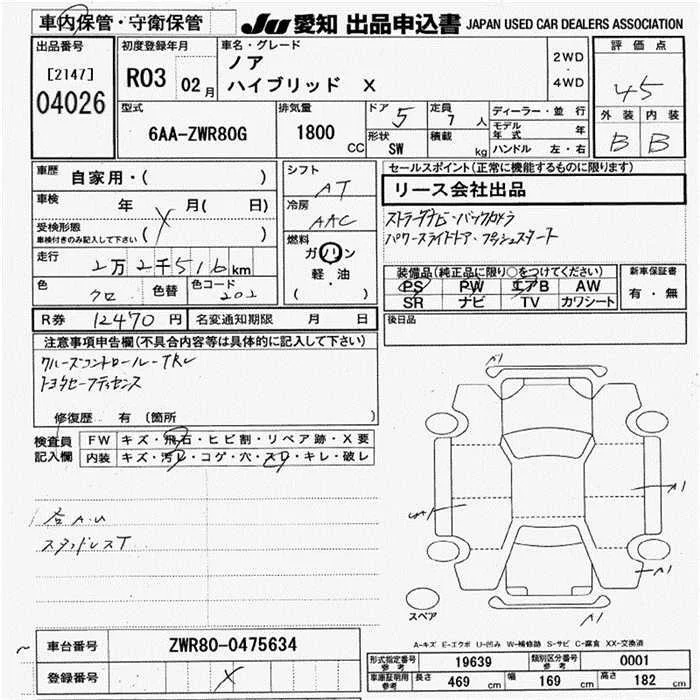 車内保管・守衛保管
JU 愛知 出品申込書 JAPAN USED CAR DEALERS ASSOCIATION
出品番号
[2147]
04026
初度登録年月
R03 02月
車名・グレード
ノア
ハイブリッド X
2WD
・
4WD
評価点
45
外装 内装
B B
型式
6AA-ZWR80G
排気量
1800 CC
ドア 5
定員 7 人
形状 SW
積載 kg
ディーラー・並行
モデル年式 年
ハンドル 左・右
車歴
自家用・( )
車検 年 月( 日)
受検形態
車検付きのみ記入して下さい ( X )
走行
2万2千516km
色 クロ
色替
色コード 202
シフト AT
冷房 AAC
燃料
ガソリン
軽・油
( )
セールスポイント(正常に機能するものに限ります)
リース会社出品
ストラーダナビ・バックカメラ
パワースライドドア・プッシュスタート
装備品(純正品に限り○をつけてください)
PS PW エアB AW
SR ナビ TV カワシート
新車保証書
有・無
後日品
R券 12470円
名変通知期限 月 日
注意事項申告欄(不具合内容等は具体的に記入して下さい)
クルーズコントロール・TRC
トヨタセーフティセンス
修復歴 有 (箇所 )
検査員記入欄
FW キズ・飛石・ヒビ割・リペア跡・X要
内装 キズ・汚レ・コゲ・穴・スリ・キレ・破レ
各A.U
スタッドレスT
A1
A1
A1
A1
スペア
A-キズ E-エクボ U-凹み W-補修跡 S-サビ C-腐食 XX-交換済
車台番号 ZWR80-0475634
登録番号 X
形式指定番号 参考 19639
類別区分番号 参考 0001
車庫証明用 参考 長さ 469 cm 幅 169 cm 高さ 182 cm